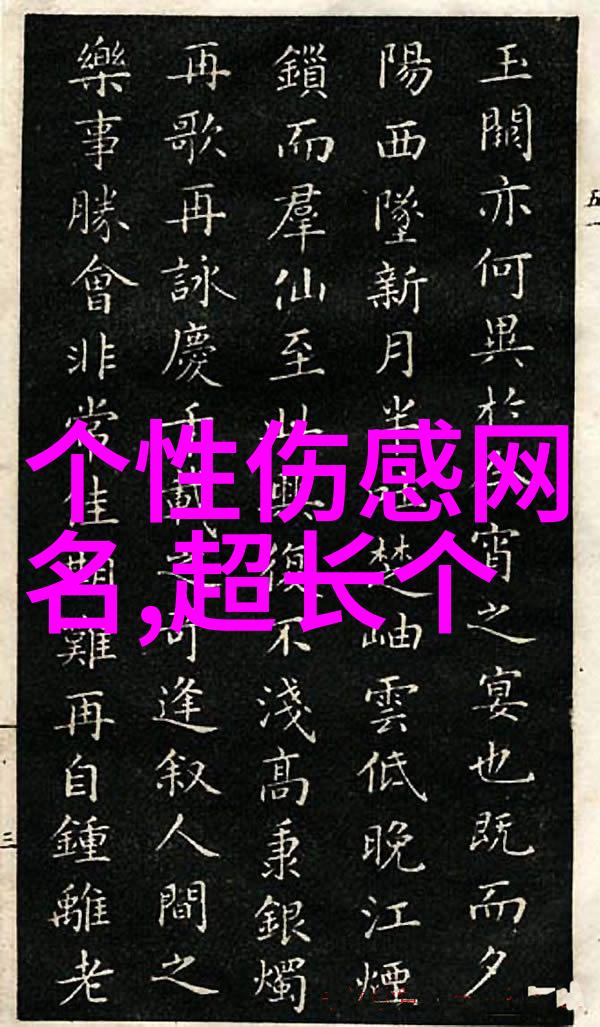 玉關亦何異於今宵之宴也既而夕
陽西墜新月半楚岫雲低晚江煙
鎖而羣仙至此興復不淺高秉銀燭
再歌再詠慶千載之可逢叙人間之
樂事勝會非常佳期難再自鍾離老
个性伤感网
名,超长个
五一
三